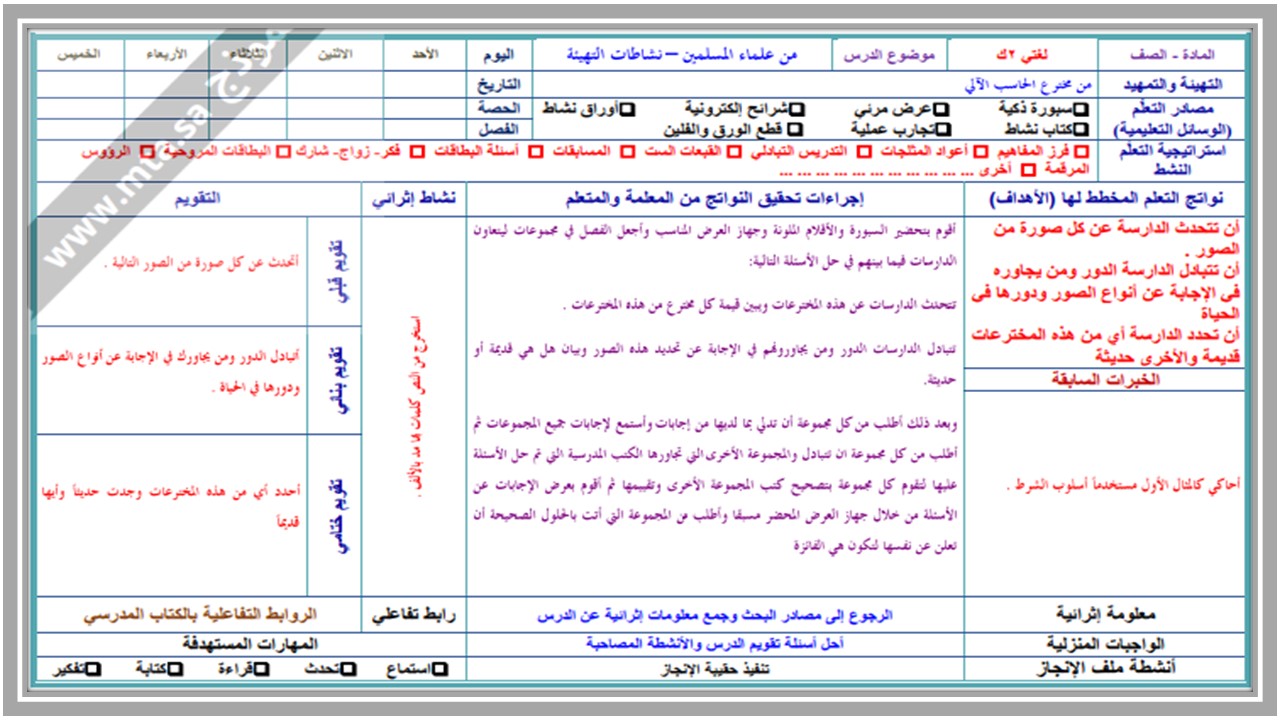 المادة - الصف	لغتي ٢ك	موضوع الدرس	من علماء المسلمين – نشاطات التهيئة	اليوم	الأحد	الاثنين	الثلاثاء	الأربعاء	الخميس
التهيئة والتمهيد	من مخترع الحاسب الآلي	التاريخ
مصادر التعلّم	سبورة ذكية	عرض مرئي	شرائح إلكترونية	أوراق نشاط	الحصة
(الوسائل التعليمية)	كتاب نشاط	تجارب عملية	قطع الورق والفلين	الفصل
استراتيجية التعلّم	فرز المفاهيم	أعواد المثلجات	التدريس التبادلي	القبعات الست	المسابقات	أسئلة البطاقات	فكر- زواج- شارك	البطاقات المروحية	الرؤوس
النشط	المرقمة	أخرى ... ... ... ... ... ... ... ... ... ...
نواتج التعلم المخطط لها (الأهداف)	إجراءات تحقيق النواتج من المعلمة والمتعلم	نشاط إثرائي	التقويم
أن تتحدث الدارسة عن كل صورة من
الصور .
أن تتبادل الدارسة الدور ومن يجاوره
في الإجابة عن أنواع الصور ودورها في
الحياة
أن تحدد الدارسة أي من هذه المخترعات
قديمة والأخرى حديثة
الخبرات السابقة
أحاكي كالمثال الأول مستخدماً أسلوب الشرط .
أقوم بتحضير السبورة والأقلام الملونة وجهاز العرض المناسب وأجعل الفصل في مجموعات ليتعاون
الدارسات فيما بينهم في حل الأسئلة التالية:
تتحدث الدارسات عن هذه المخترعات ويبين قيمة كل مخترع من هذه المخترعات .
تتبادل الدارسات الدور ومن يجاوروهم في الإجابة عن تحديد هذه الصور وبيان هل هي قديمة أو
حديثة.
وبعد ذلك أطلب من كل مجموعة أن تدلي بما لديها من إجابات وأستمع لإجابات جميع المجموعات ثم
أطلب من كل مجموعة ان تتبادل والمجموعة الأخرى التي تجاورها الكتب المدرسية التي تم حل الأسئلة
عليها لتقوم كل مجموعة بتصحيح كتب المجموعة الأخرى وتقييمها ثم أقوم بعرض الإجابات عن
الأسئلة من خلال جهاز العرض المحضر مسبقا وأطلب من المجموعة التي أتت بالحلول الصحيحة أن
تعلن عن نفسها لتكون هي الفائزة
استخرج من النص كلمات بها مد بالألف .
تقويم قبلي
أتحدث عن كل صورة من الصور التالية .
تقويم بنائي
أتبادل الدور ومن يجاورك في الإجابة عن أنواع الصور
ودورها في الحياة .
تقويم ختامي
أحدد أي من هذه المخترعات وجدت حديثاً وأيها
قديماً
معلومة إثرائية	الرجوع إلى مصادر البحث وجمع معلومات إثرائية عن الدرس	رابط تفاعلي	الروابط التفاعلية بالكتاب المدرسي
الواجبات المنزلية	أحل أسئلة تقويم الدرس والأنشطة المصاحبة	المهارات المستهدفة
أنشطة ملف الإنجاز	تنفيذ حقيبة الإنجاز	استماع	تحدث	قراءة	كتابة	تفكير
نموذج www.mtc.sa